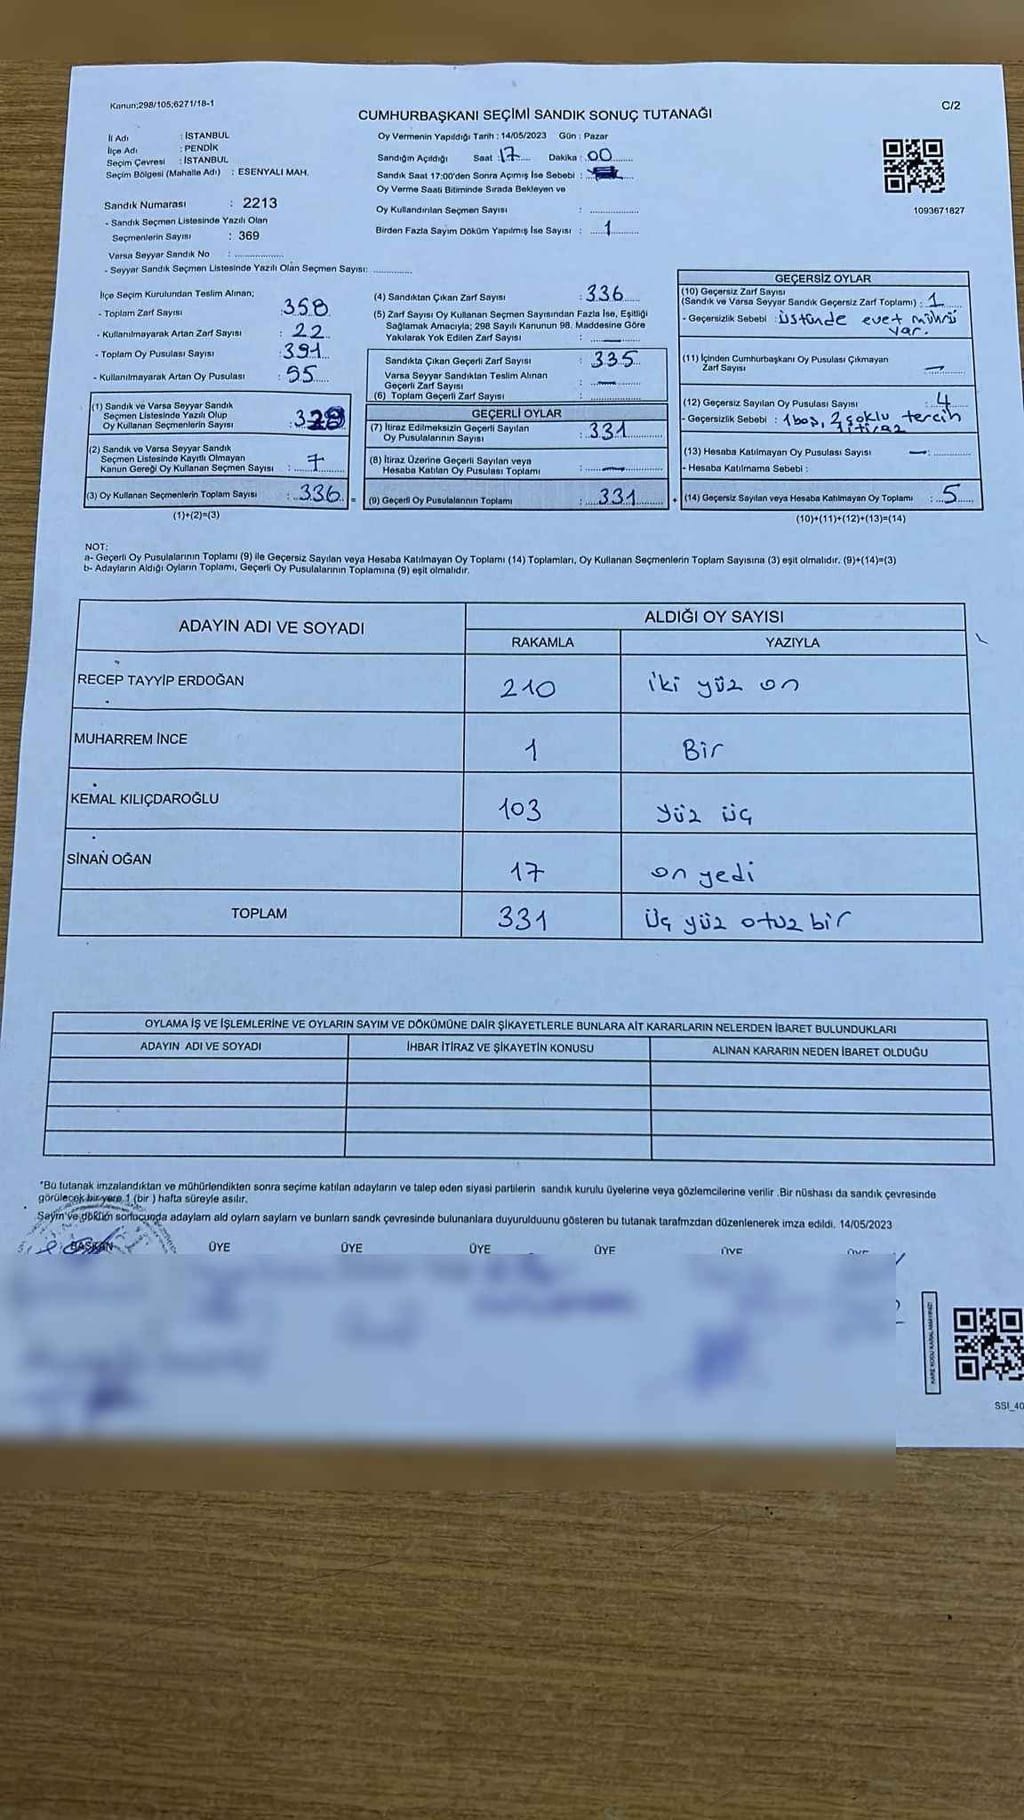 Kanun;298/105;6271/18-1
C/2
CUMHURBAŞKANI SEÇİMİ SANDIK SONUÇ TUTANAĞI
İl Adı : İSTANBUL
İlçe Adı : PENDİK
Seçim Çevresi : İSTANBUL
Seçim Bölgesi (Mahalle Adı) : ESENYALI MAH.
Sandık Numarası : 2213
- Sandık Seçmen Listesinde Yazılı Olan
Seçmenlerin Sayısı : 369
Varsa Seyyar Sandık No :
- Seyyar Sandık Seçmen Listesinde Yazılı Olan Seçmen Sayısı:
Oy Vermenin Yapıldığı Tarih : 14/05/2023 Gün : Pazar
Sandığın Açıldığı Saat : 17 Dakika : 00
Sandık Saat 17:00'den Sonra Açımış İse Sebebi :
Oy Verme Saati Bitiminde Sırada Bekleyen ve
Oy Kullandırılan Seçmen Sayısı :
Birden Fazla Sayım Döküm Yapılmış İse Sayısı : 1
1093671827
İlçe Seçim Kurulundan Teslim Alınan;
- Toplam Zarf Sayısı : 358
- Kullanılmayarak Artan Zarf Sayısı : 22
- Toplam Oy Pusulası Sayısı : 391
- Kullanılmayarak Artan Oy Pusulası : 55
(1) Sandık ve Varsa Seyyar Sandık
Seçmen Listesinde Yazılı Olup
Oy Kullanan Seçmenlerin Sayısı : 329
(2) Sandık ve Varsa Seyyar Sandık
Seçmen Listesinde Kayıtlı Olmayan
Kanun Gereği Oy Kullanan Seçmen Sayısı : 7
(3) Oy Kullanan Seçmenlerin Toplam Sayısı : 336 =
(1)+(2)=(3)
(4) Sandıktan Çıkan Zarf Sayısı : 336
(5) Zarf Sayısı Oy Kullanan Seçmen Sayısından Fazla İse, Eşitliği
Sağlamak Amacıyla; 298 Sayılı Kanunun 98. Maddesine Göre
Yakılarak Yok Edilen Zarf Sayısı : —
Sandıkta Çıkan Geçerli Zarf Sayısı : 335
Varsa Seyyar Sandıktan Teslim Alınan
Geçerli Zarf Sayısı : —
(6) Toplam Geçerli Zarf Sayısı :
GEÇERLİ OYLAR
(7) İtiraz Edilmeksizin Geçerli Sayılan
Oy Pusulalarının Sayısı : 331
(8) İtiraz Üzerine Geçerli Sayılan veya
Hesaba Katılan Oy Pusulası Toplamı : —
(9) Geçerli Oy Pusulalarının Toplamı : 331 +
GEÇERSİZ OYLAR
(10) Geçersiz Zarf Sayısı
(Sandık ve Varsa Seyyar Sandık Geçersiz Zarf Toplamı) : 1
- Geçersizlik Sebebi : üstünde evet mührü
var.
(11) İçinden Cumhurbaşkanı Oy Pusulası Çıkmayan
Zarf Sayısı : —
(12) Geçersiz Sayılan Oy Pusulası Sayısı : 4
- Geçersizlik Sebebi : 1 boş, 2 çoklu tercih
1 itiraz
(13) Hesaba Katılmayan Oy Pusulası Sayısı — :
- Hesaba Katılmama Sebebi :
(14) Geçersiz Sayılan veya Hesaba Katılmayan Oy Toplamı : 5
(10)+(11)+(12)+(13)=(14)
NOT:
a- Geçerli Oy Pusulalarının Toplamı (9) ile Geçersiz Sayılan veya Hesaba Katılmayan Oy Toplamı (14) Toplamları, Oy Kullanan Seçmenlerin Toplam Sayısına (3) eşit olmalıdır. (9)+(14)=(3)
b- Adayların Aldığı Oyların Toplamı, Geçerli Oy Pusulalarının Toplamına (9) eşit olmalıdır.
ADAYIN ADI VE SOYADI
ALDIĞI OY SAYISI
RAKAMLA YAZIYLA
RECEP TAYYİP ERDOĞAN 210 iki yüz on
MUHARREM İNCE 1 Bir
KEMAL KILIÇDAROĞLU 103 yüz üç
SİNAN OĞAN 17 on yedi
TOPLAM 331 üç yüz otuz bir
OYLAMA İŞ VE İŞLEMLERİNE VE OYLARIN SAYIM VE DÖKÜMÜNE DAİR ŞİKAYETLERLE BUNLARA AİT KARARLARIN NELERDEN İBARET BULUNDUKLARI
ADAYIN ADI VE SOYADI İHBAR İTİRAZ VE ŞİKAYETİN KONUSU ALINAN KARARIN NEDEN İBARET OLDUĞU
*Bu tutanak imzalandıktan ve mühürlendikten sonra seçime katılan adayların ve talep eden siyasi partilerin sandık kurulu üyelerine veya gözlemcilerine verilir .Bir nüshası da sandık çevresinde
görülecek bir yere 1 (bir ) hafta süreyle asılır.
Sayım ve döküm sonucunda adayların ald oyların sayları ve bunların sandk çevresinde bulunanlara duyurulduunu gösteren bu tutanak tarafmzdan düzenlenerek imza edildi. 14/05/2023
BAŞKAN ÜYE ÜYE ÜYE ÜYE ÜYE ÜYE
KARE KODU KARALAMAYINIZ!
SSI_40